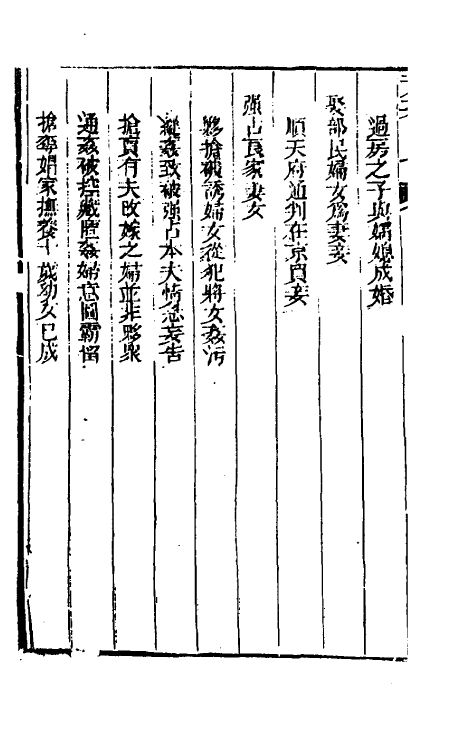 過房之子與孀媳成婚
娶部民婦女爲妻妾
順天府通判在京買妾
强占良家妻女
夥搶被誘婦女從犯將女姦污
縱姦致被强占本夫情急妄告
搶賣有夫改嫁之婦並非夥眾
通姦被控藏匿姦婦意圖霸留
搶奪娼家撫養十歲幼女已成